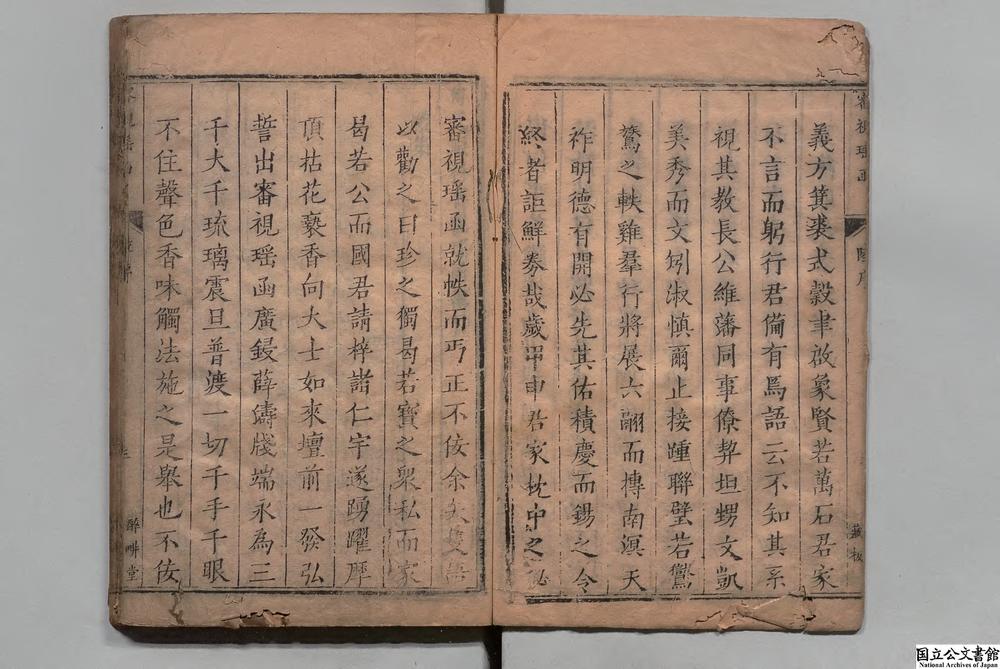 義方箕裘式穀聿啟象賢若萬石君家
不言而躬行君備有焉語云不知其系
視其教長公維藩同事僚契坦甥文凱
美秀而文夘淑慎爾止接踵聯璧若鸞
鶱之軼雞羣行將展六翮而摶南溟天
祚明德有開必先其佑積慶而錫之令
終者詎鮮券哉歲甲申君家枕中之秘
審視瑶函就帙而丐正不佞余
以勸之曰珍之獨曷若寶之衆私而家
曷若公而國君請梓諸仁宇遂踴躍摩
頂拈花爇香向大士如來壇前一發弘
誓出審視瑶函廣鋟薛濤牋端永為三
千大千琉璃震旦普渡一切千手千眼
不住聲色香味觸法施之是舉也不佞
醉畊堂
国立公文書館
National Archives of Japan